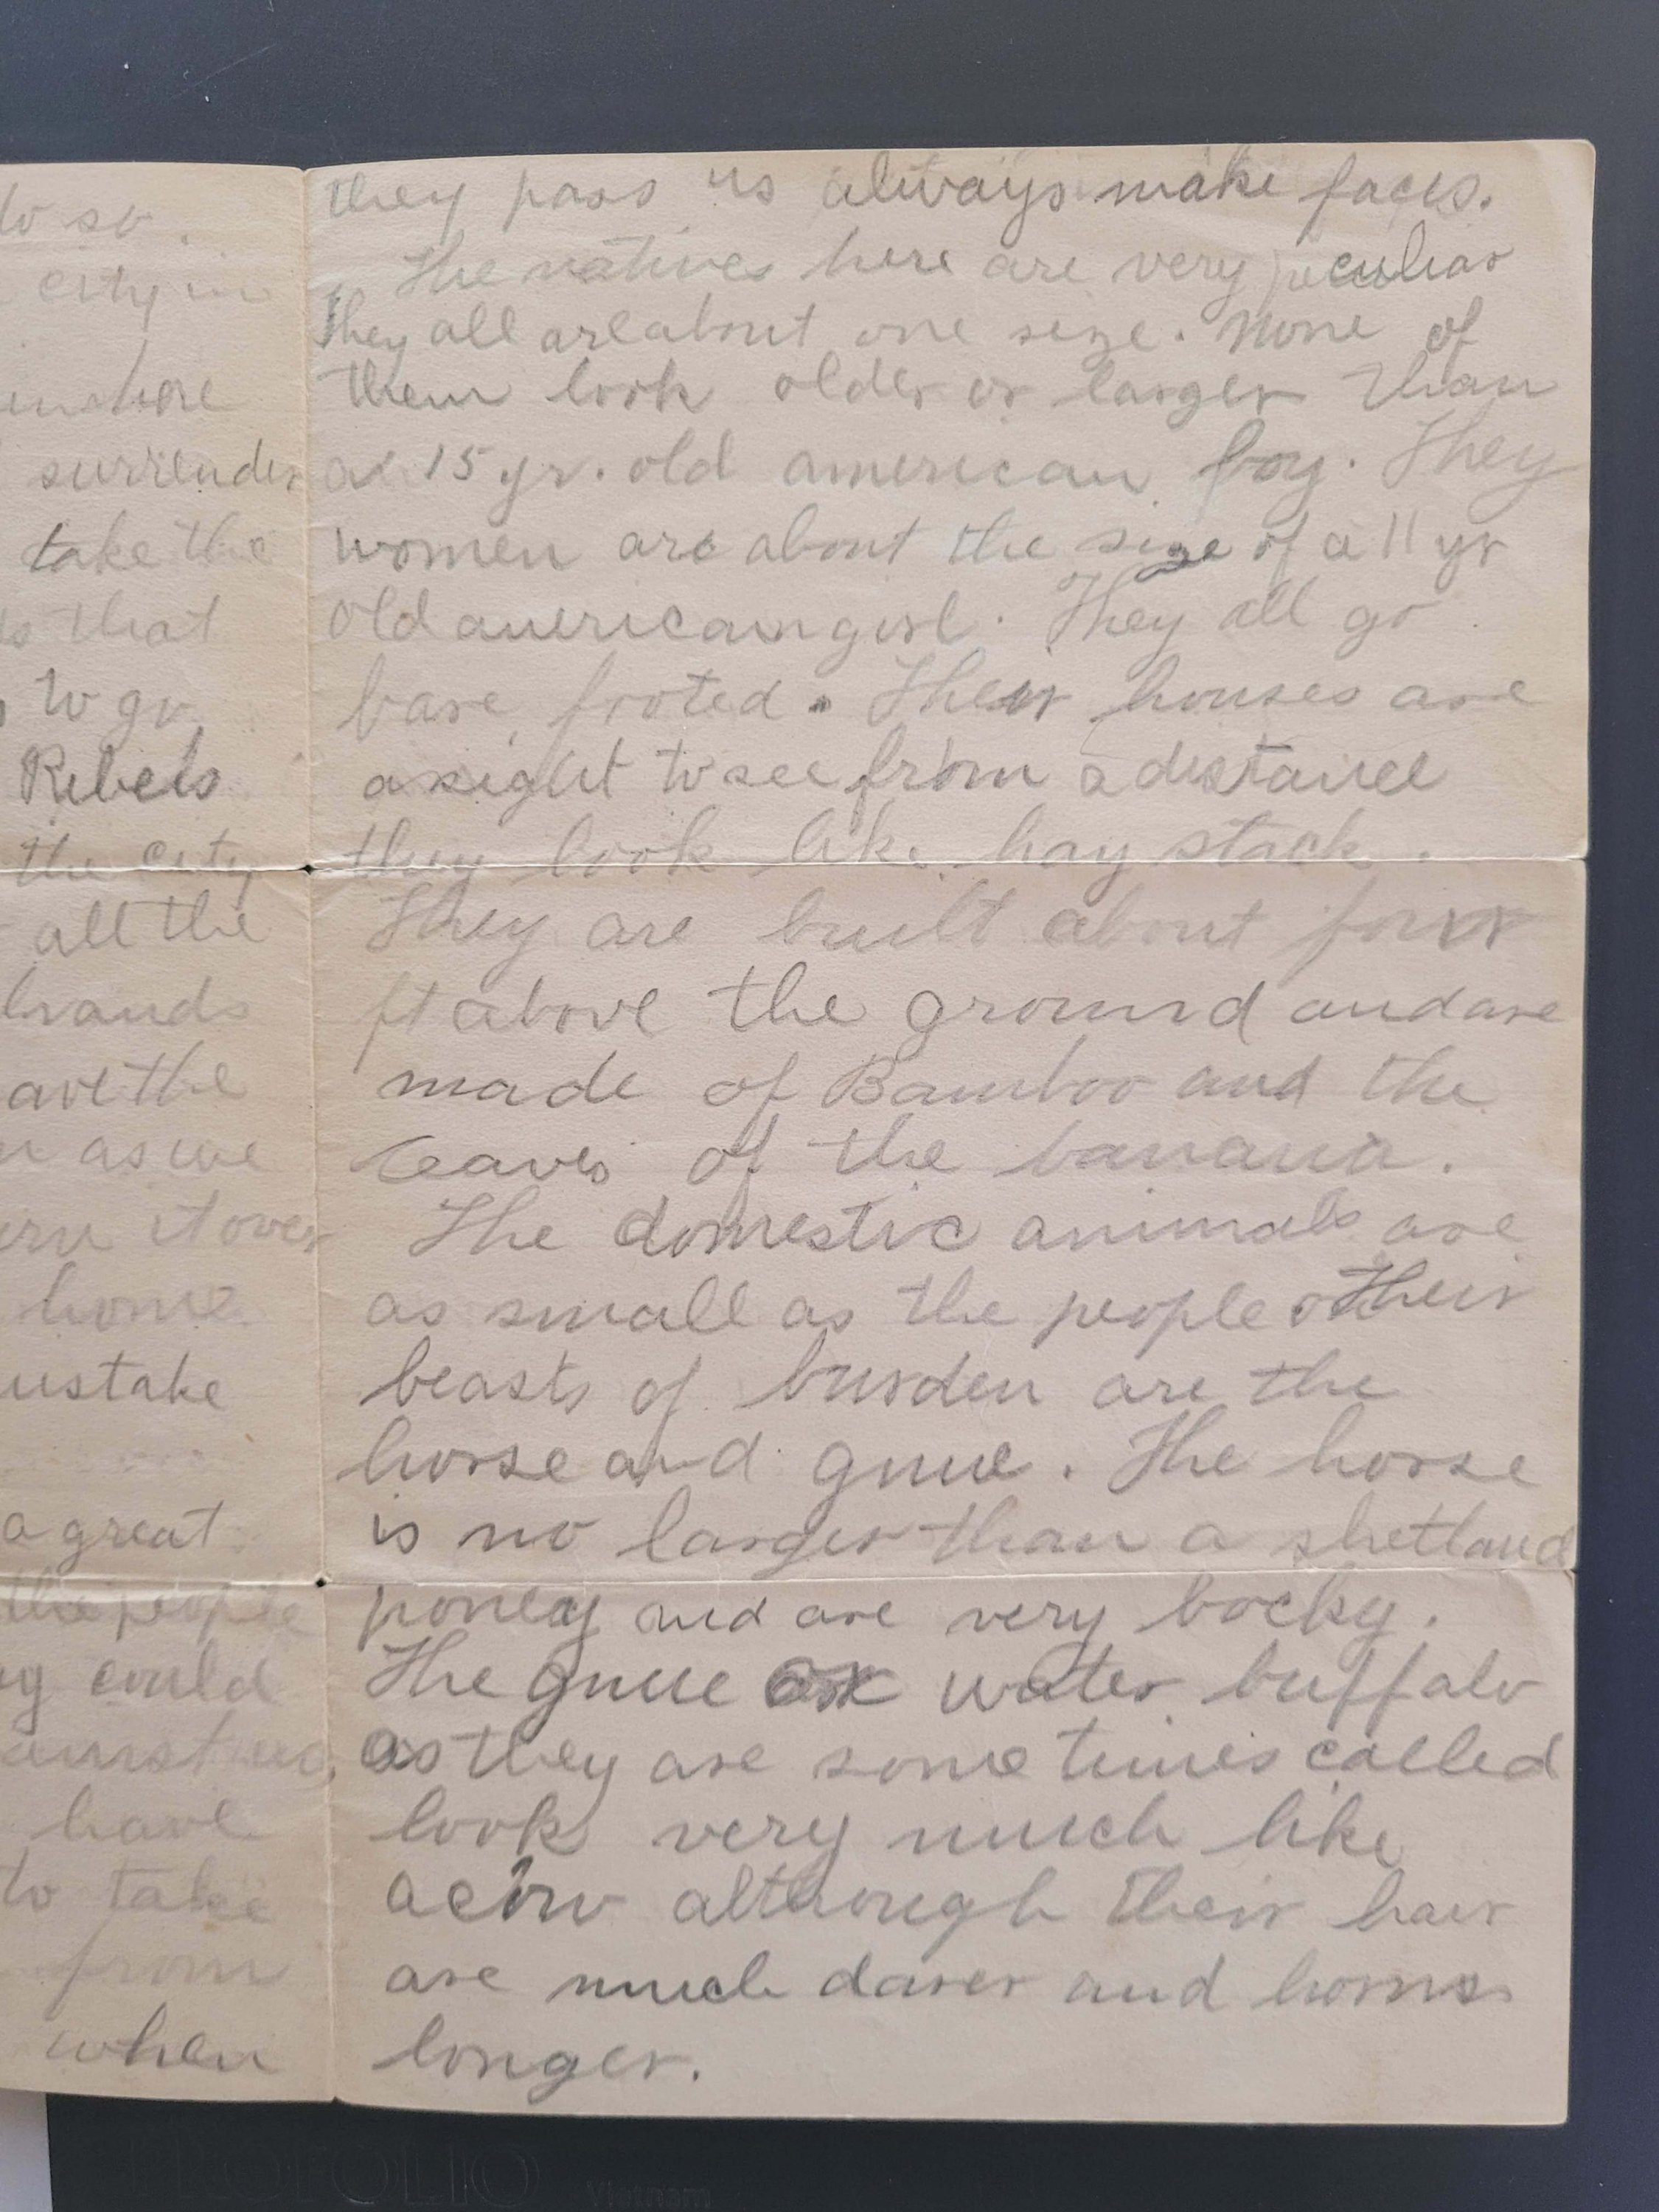 do so.
city in
surrender
take the
that
to go
Rebels
the city
all the
hands
ave the
as we
it over
home
mistake
a great
the people
could
have
to take
from
when
they pass us always make faces.
The natives here are very peculiar
They all are about one size. None of
them look older or larger than
a 15 yr. old american boy. They
women are about the size of a 11 yr
old american girl. They all go
bare footed. Their houses are
a sight to see from a distance
they look like hay stack.
They are built about four
ft above the ground and are
made of Bamboo and the
leaves of the banana.
The domestic animals are
as small as the people Their
beasts of burden are the
horse and gnue. The horse
is no larger than a shetland
poney and are very bocky.
The gnue or water buffalo
as they are some times called
look very much like
a cow although their hair
are much darer and horns
longer.
PROFOLIO
Vietnam